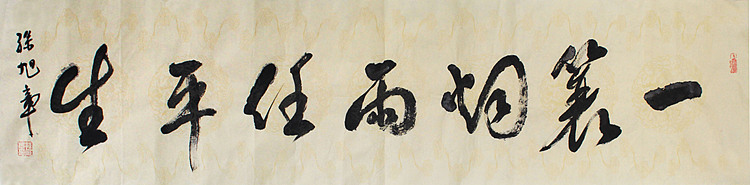 一蓑烟雨任平生
孫旭章